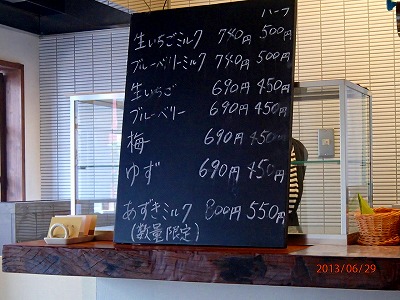 ハーフ
生いちごミルク 740円 500円
ブルーベリーミルク 740円 500円
生いちご 690円 450円
ブルーベリー 690円 450円
梅 690円 450円
ゆず 690円 450円
あずきミルク 800円 550円
(数量限定)
2013/06/29